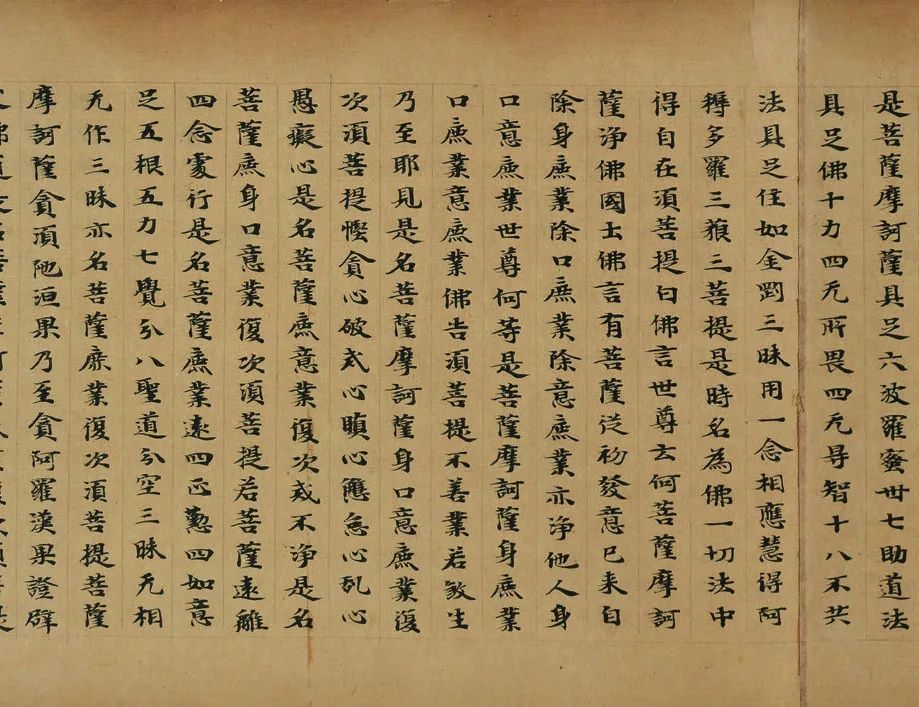 是菩薩摩訶薩具足六波羅蜜卅七助道法
具足佛十力四无所畏四无㝵智十八不共
法具足住如金剛三昧用一念相應慧得阿
耨多羅三藐三菩提是時名為佛一切法中
得自在須菩提白佛言世尊云何菩薩摩訶
薩淨佛國土佛言有菩薩從初發意已来自
除身麁業除口麁業除意麁業亦淨他人身
口意麁業世尊何等是菩薩摩訶薩身麁業
口麁業意麁業佛告須菩提不善業若煞生
乃至耶見是名菩薩摩訶薩身口意麁業復
次須菩提慳貪心破戒心瞋心懈怠心乱心
愚癡心是名菩薩麁意業復次戒不淨是名
菩薩麁身口意業復次須菩提若菩薩遠離
四念處行是名菩薩麁業遠四正懃四如意
足五根五力七覺分八聖道分空三昧无相
无作三昧亦名菩薩麁業復次須菩提菩薩
摩訶薩貪須陁洹果乃至貪阿羅漢果證辟